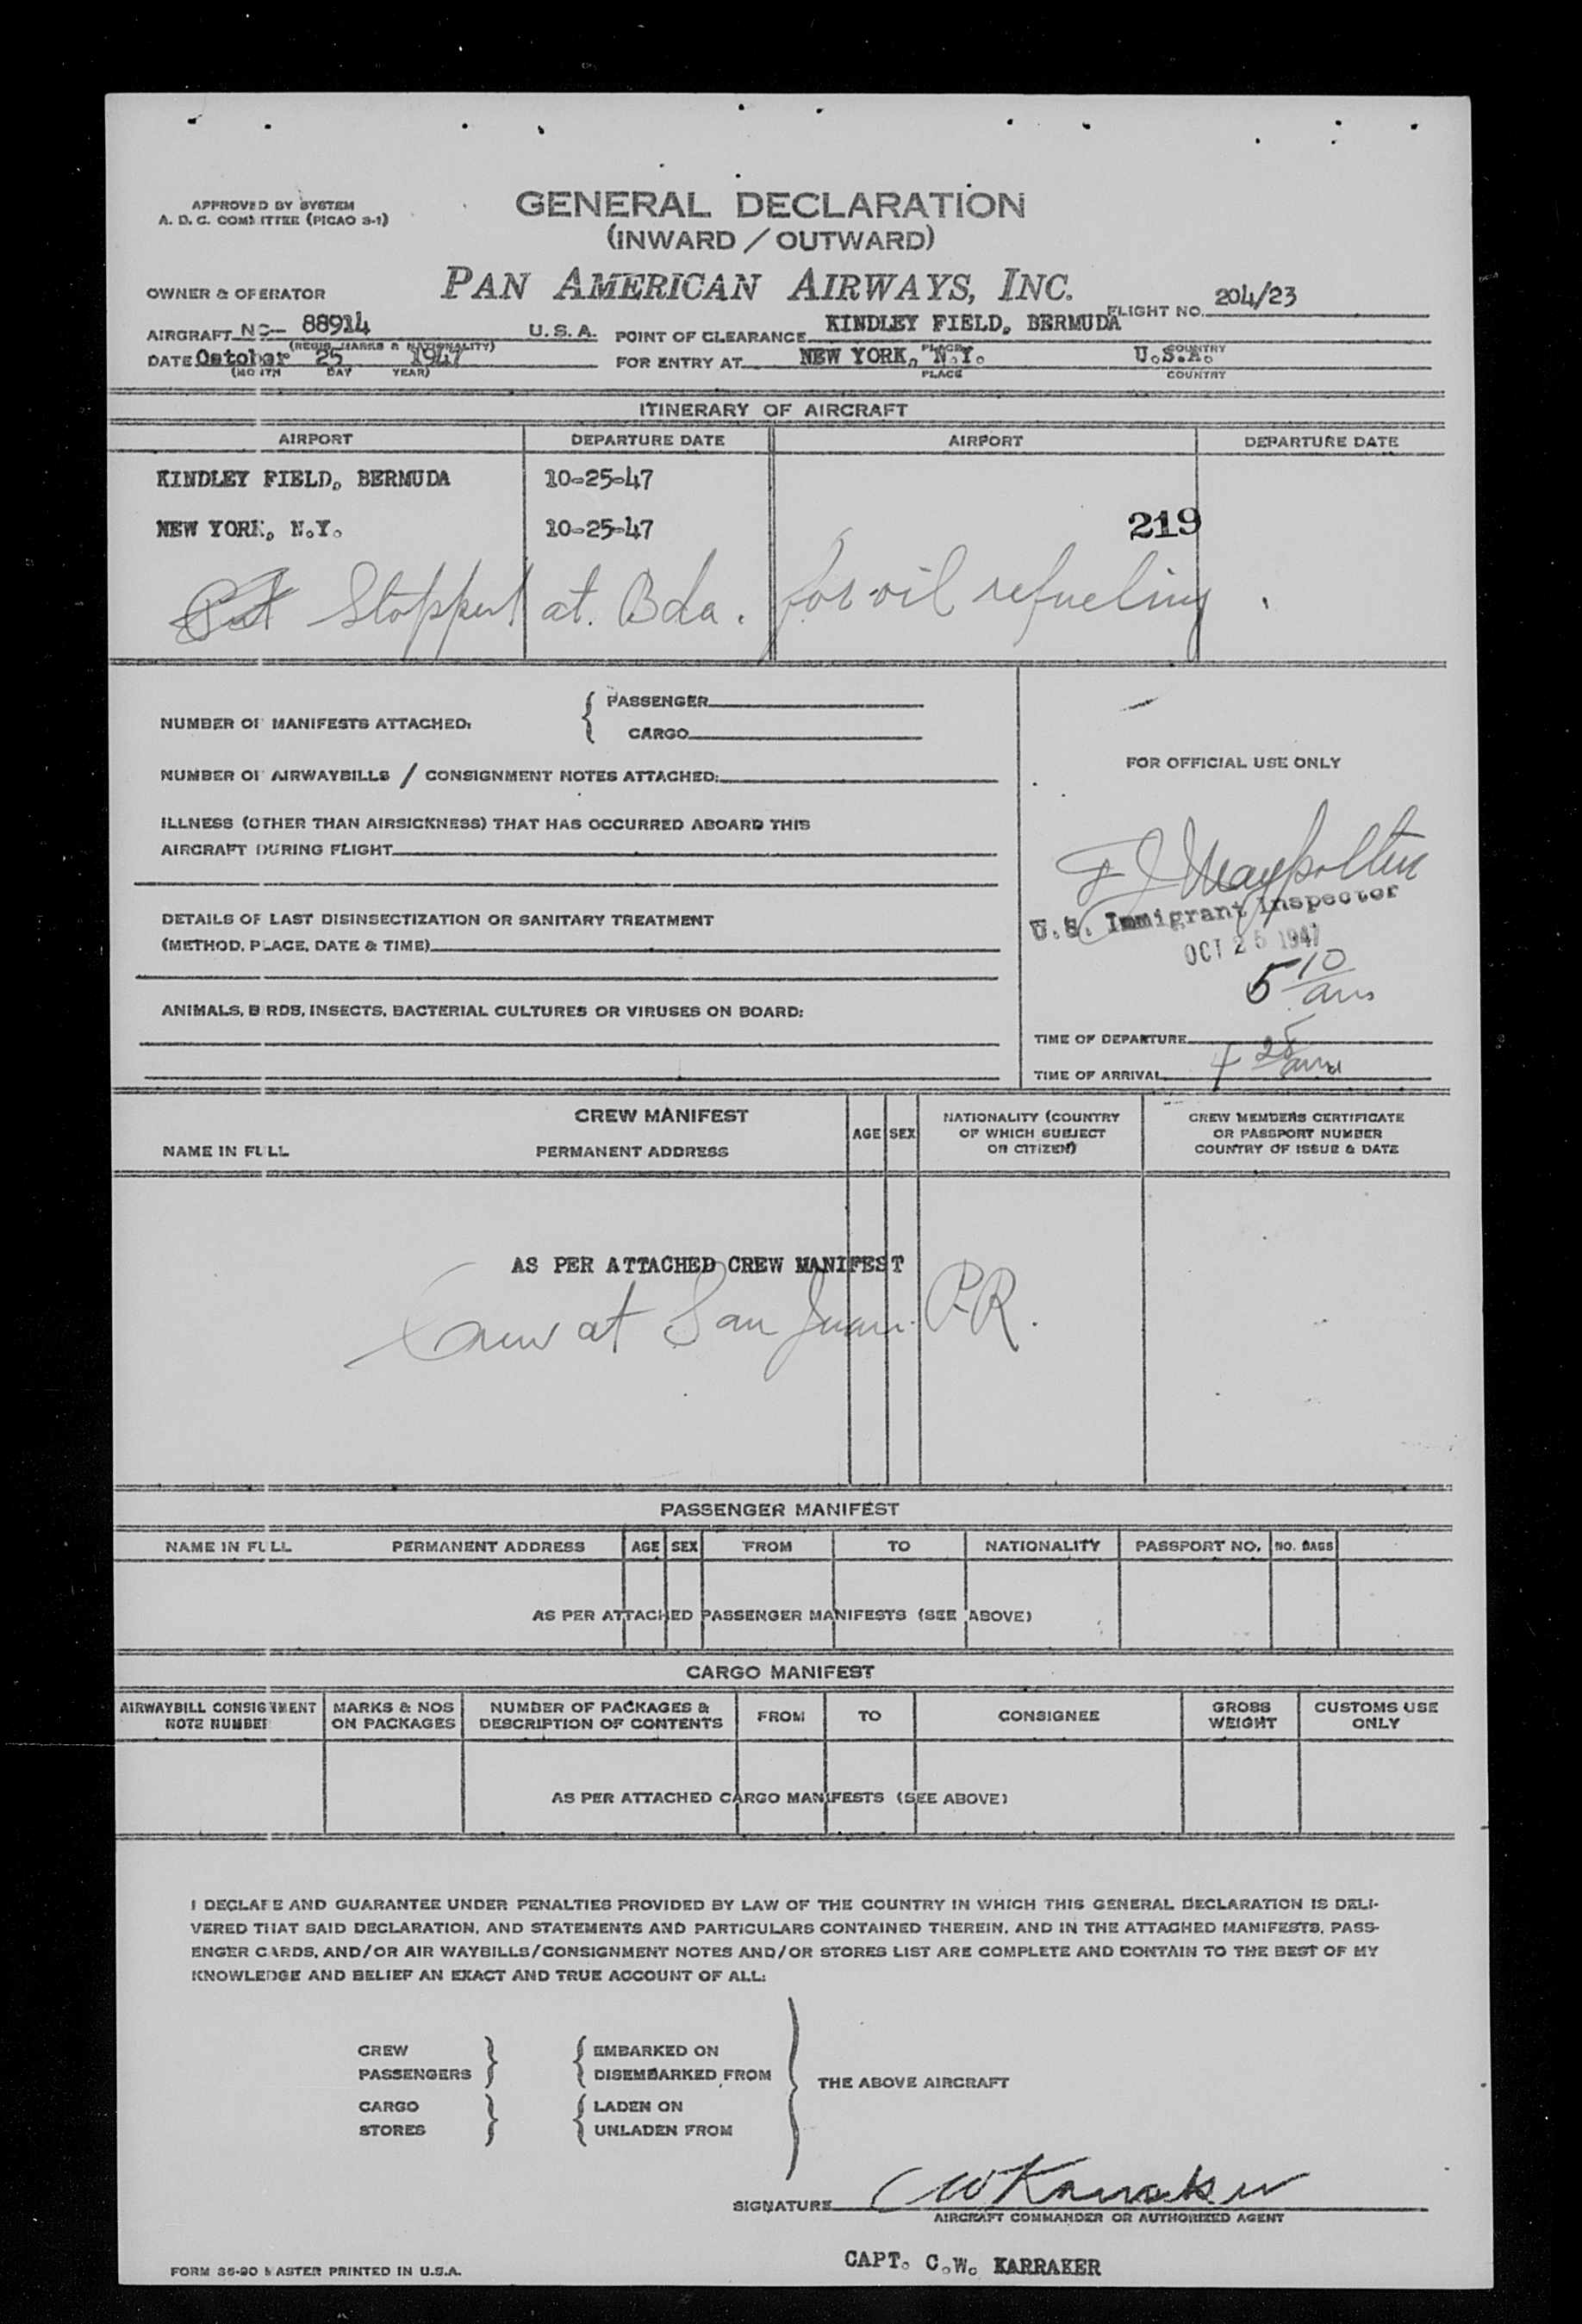 APPROVED BY SYSTEM
A. D. C. COMMITTEE (PICAO 3-1)
GENERAL DECLARATION
(INWARD / OUTWARD)
OWNER & OPERATOR PAN AMERICAN AIRWAYS, INC. FLIGHT NO. 204/23
AIRCRAFT NC- 88914 U. S. A. POINT OF CLEARANCE KINDLEY FIELD, BERMUDA
(REGIS. MARKS & NATIONALITY) PLACE COUNTRY
DATE October 25 1947 FOR ENTRY AT NEW YORK, N.Y. U.S.A.
(MONTH DAY YEAR) PLACE COUNTRY
ITINERARY OF AIRCRAFT
AIRPORT DEPARTURE DATE AIRPORT DEPARTURE DATE
KINDLEY FIELD, BERMUDA 10-25-47
NEW YORK, N.Y. 10-25-47 219
Stopped at. Bda. for oil refueling.
NUMBER OF MANIFESTS ATTACHED: { PASSENGER
CARGO
NUMBER OF AIRWAYBILLS / CONSIGNMENT NOTES ATTACHED:
ILLNESS (OTHER THAN AIRSICKNESS) THAT HAS OCCURRED ABOARD THIS
AIRCRAFT DURING FLIGHT
DETAILS OF LAST DISINSECTIZATION OR SANITARY TREATMENT
(METHOD, PLACE, DATE & TIME)
ANIMALS, BIRDS, INSECTS, BACTERIAL CULTURES OR VIRUSES ON BOARD:
FOR OFFICIAL USE ONLY
U.S. Immigrant Inspector
OCT 25 1947
5 10 am
TIME OF DEPARTURE
TIME OF ARRIVAL 4 25 am
CREW MANIFEST
NAME IN FULL PERMANENT ADDRESS AGE SEX NATIONALITY (COUNTRY OF WHICH SUBJECT OR CITIZEN) CREW MEMBERS CERTIFICATE OR PASSPORT NUMBER COUNTRY OF ISSUE & DATE
AS PER ATTACHED CREW MANIFEST
Crew at San Juan. P.R.
PASSENGER MANIFEST
NAME IN FULL PERMANENT ADDRESS AGE SEX FROM TO NATIONALITY PASSPORT NO. NO. BAGS
AS PER ATTACHED PASSENGER MANIFESTS (SEE ABOVE)
CARGO MANIFEST
AIRWAYBILL CONSIGNMENT NOTE NUMBER MARKS & NOS ON PACKAGES NUMBER OF PACKAGES & DESCRIPTION OF CONTENTS FROM TO CONSIGNEE GROSS WEIGHT CUSTOMS USE ONLY
AS PER ATTACHED CARGO MANIFESTS (SEE ABOVE)
I DECLARE AND GUARANTEE UNDER PENALTIES PROVIDED BY LAW OF THE COUNTRY IN WHICH THIS GENERAL DECLARATION IS DELI-
VERED THAT SAID DECLARATION, AND STATEMENTS AND PARTICULARS CONTAINED THEREIN, AND IN THE ATTACHED MANIFESTS, PASS-
ENGER CARDS, AND/OR AIR WAYBILLS/CONSIGNMENT NOTES AND/OR STORES LIST ARE COMPLETE AND CONTAIN TO THE BEST OF MY
KNOWLEDGE AND BELIEF AN EXACT AND TRUE ACCOUNT OF ALL:
CREW } { EMBARKED ON
PASSENGERS } { DISEMBARKED FROM
THE ABOVE AIRCRAFT
CARGO } { LADEN ON
STORES } { UNLADEN FROM
SIGNATURE CW Karraker
AIRCRAFT COMMANDER OR AUTHORIZED AGENT
CAPT. C.W. KARRAKER
FORM 36-90 MASTER PRINTED IN U.S.A.